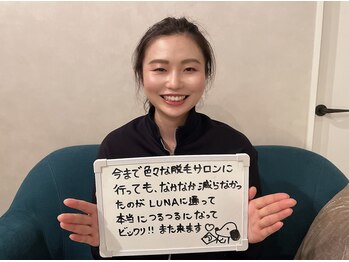 今まで色々な脱毛サロンに
行っても、なかなか減らなかっ
たのが LUNAに通って
本当につるつるになって
ビックリ!! また来ます♡